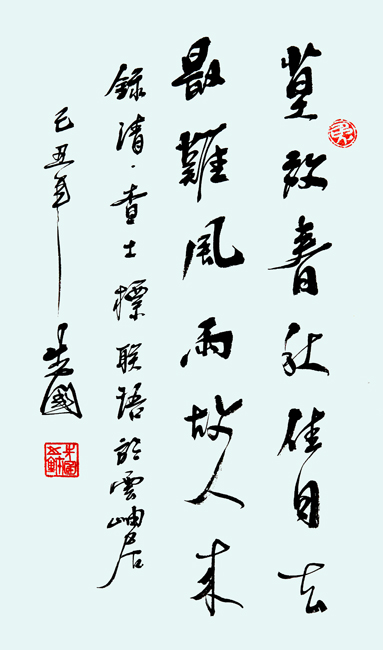 莫放春秋佳日去
最難風雨故人来
錄清·查士標聯語於雲岫居
己丑年 朱國